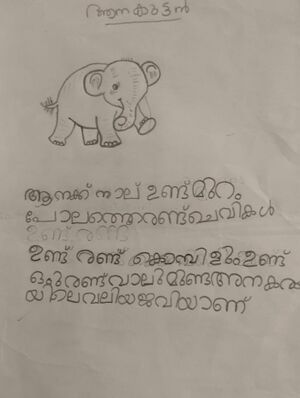 ആനകുട്ടൻ
ആനക്ക് നാല് ഉണ്ട് മുറം
പോലത്തൊരണ്ട് ചെവികൾ
ഉണ്ട് രണ്ട്
ഉണ്ട് രണ്ട് കൊമ്പിളും ഉണ്ട്
ഒരു രണ്ട് വാലുമുണ്ട അനകര
യിലെ വലിയ ജവിയാണ്